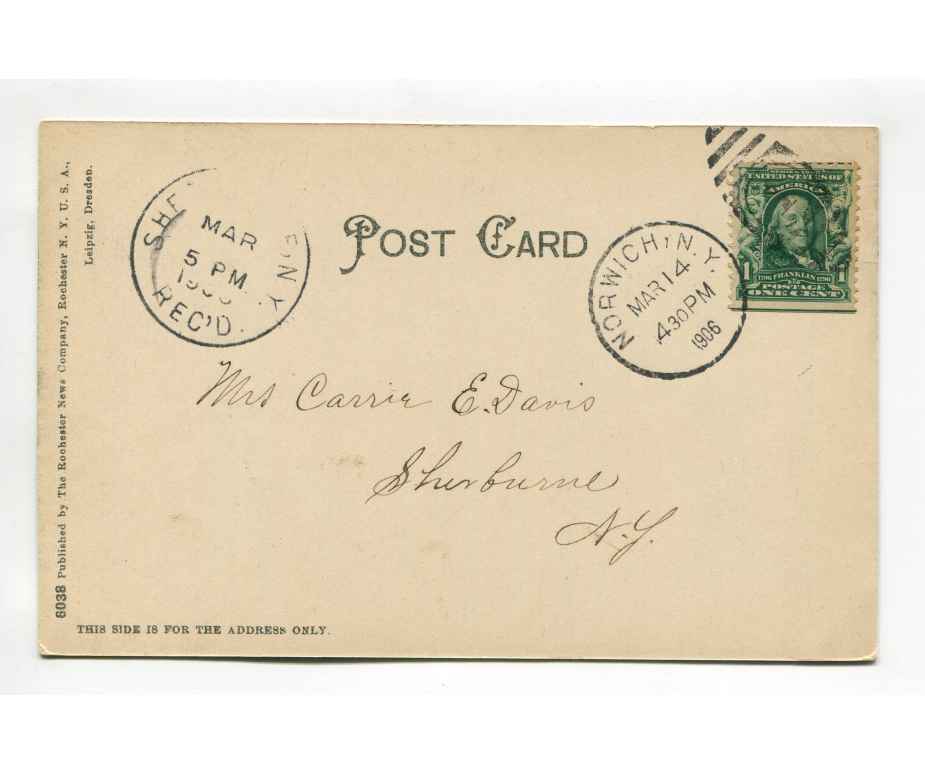 6038 Published by The Rochester News Company, Rochester N. Y. U. S. A.,
Leipzig, Dresden.
SHE NY
MAR
5 PM
REC'D.
POST CARD
NORWICH, N.Y.
MAR 14
430PM
1906
SERIES 1902
UNITED STATES OF
AMERICA
1 1706 FRANKLIN 1790 1
POSTAGE
ONE CENT
Mrs Carrie E. Davis
Sherburne
N.Y.
THIS SIDE IS FOR THE ADDRESS ONLY.